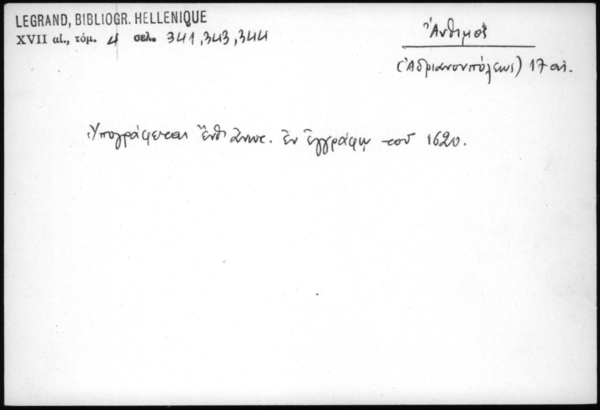 LEGRAND, BIBLIOGR. HELLENIQUE
XVII αἰ., τόμ. 4 σελ. 341, 343, 344
Ἄνθιμος
(Ἀδριανουπόλεως) 17 αἰ.
Ὑπογράφεται ἐν ἐγγράφῳ τοῦ 1620.